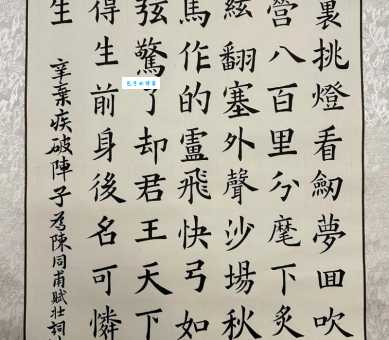 裏挑燈看劒夢回吹
營八百里分麾下炙
絃翻塞外聲沙場秋
馬作的盧飛快弓如
弦驚了却君王天下
得生前身後名可憐
生
辛棄疾破陣子為陳同甫賦壯詞